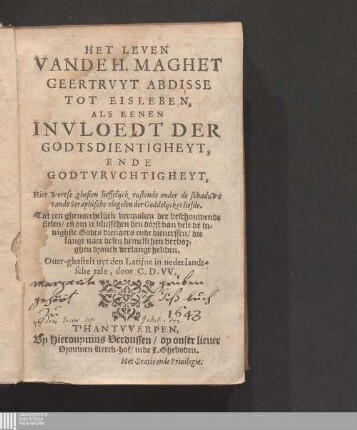 HET LEVEN
VANDE H. MAGHET
GEERTRVYT ABDISSE
TOT EISLEBEN,
ALS EENEN
INVLOEDT DER
GODTSDIENTIGHEYT,
ENDE
GODTVRVCHTIGHEYT,
Hier wortse ghesien lieffelijck rustende onder de schaduwe
vande Seraphische vlogelen der Goddelijcker liefde.
Tot een ghenoechelijck vermaken der beschouwende
sielen/ en om te blusschen den dorst van vele de in-
nighste Godts dienaers ende dienerssen/ die
lange naer desen hemelschen verbor-
ghen dranck verlangt hebben.
Over-gheset uyt den Latijne in nederlandt-
sche tale, door C. D. VV.
margareta gruben
gehört diß buch
Zu 1643
T'HANTVVERPEN,
By Hieronymus Verdussen/ op onser liever
Vrouwen Kerck-hof/ inde X. Gheboden.
Met Gratie ende Privilegie.